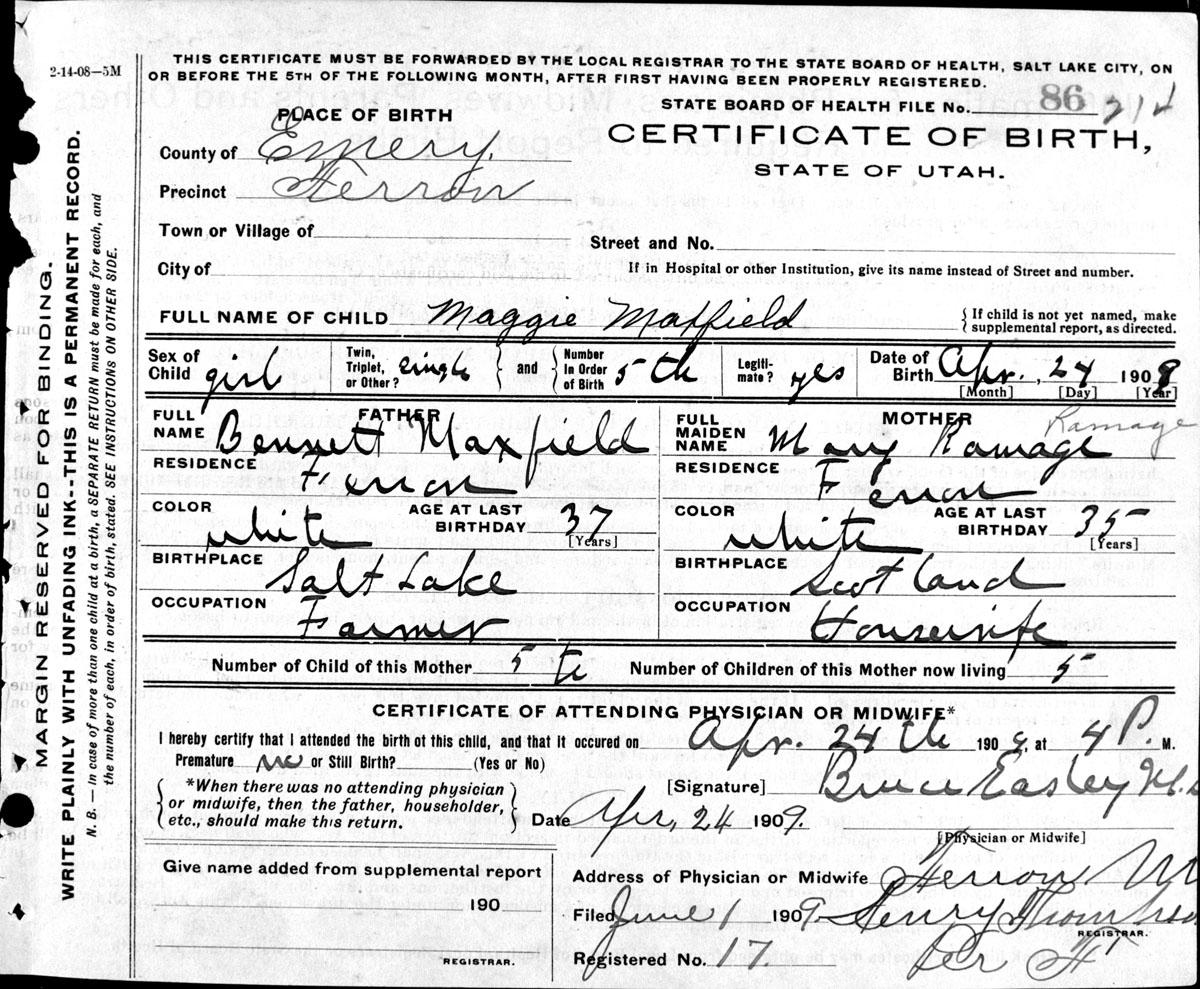 2-14-08—5M
THIS CERTIFICATE MUST BE FORWARDED BY THE LOCAL REGISTRAR TO THE STATE BOARD OF HEALTH, SALT LAKE CITY, ON
OR BEFORE THE 5TH OF THE FOLLOWING MONTH, AFTER FIRST HAVING BEEN PROPERLY REGISTERED.
STATE BOARD OF HEALTH FILE No. 86 214
PLACE OF BIRTH
CERTIFICATE OF BIRTH,
STATE OF UTAH.
County of Emery.
Precinct Ferron
Town or Village of
Street and No.
City of
If in Hospital or other Institution, give its name instead of Street and number.
FULL NAME OF CHILD Maggie Maxfield
{ If child is not yet named, make
supplemental report, as directed.
Sex of Child girl
Twin, Triplet, or Other? single } and { Number In Order of Birth 5th
Legiti-mate? yes
Date of Birth Apr. , 24 1909
[Month] [Day] [Year]
FATHER
FULL NAME Bennett Maxfield
RESIDENCE Ferron
COLOR white
AGE AT LAST BIRTHDAY 37
[Years]
BIRTHPLACE Salt Lake
OCCUPATION Farmer
MOTHER
Ramage
FULL MAIDEN NAME Mary Ramage
RESIDENCE Ferron
COLOR white
AGE AT LAST BIRTHDAY 35
[Years]
BIRTHPLACE Scotland
OCCUPATION Housewife
Number of Child of this Mother 5th Number of Children of this Mother now living 5
CERTIFICATE OF ATTENDING PHYSICIAN OR MIDWIFE*
I hereby certify that I attended the birth of this child, and that it occured on Apr. 24th 1909, at 4 P. M.
Premature no or Still Birth? (Yes or No)
{ *When there was no attending physician
or midwife, then the father, householder,
etc., should make this return. }
[Signature] Bruce Easley M.D
Date Apr, 24 1909.
[Physician or Midwife]
Give name added from supplemental report
190
REGISTRAR.
Address of Physician or Midwife Ferron
Filed June 1 1909. Henry
REGISTRAR.
Registered No. 17. Per
MARGIN RESERVED FOR BINDING.
WRITE PLAINLY WITH UNFADING INK-THIS IS A PERMANENT RECORD.
N. B. — In case of more than one child at a birth, a SEPARATE RETURN must be made for each, and
the number of each, in order of birth, stated. SEE INSTRUCTIONS ON OTHER SIDE.